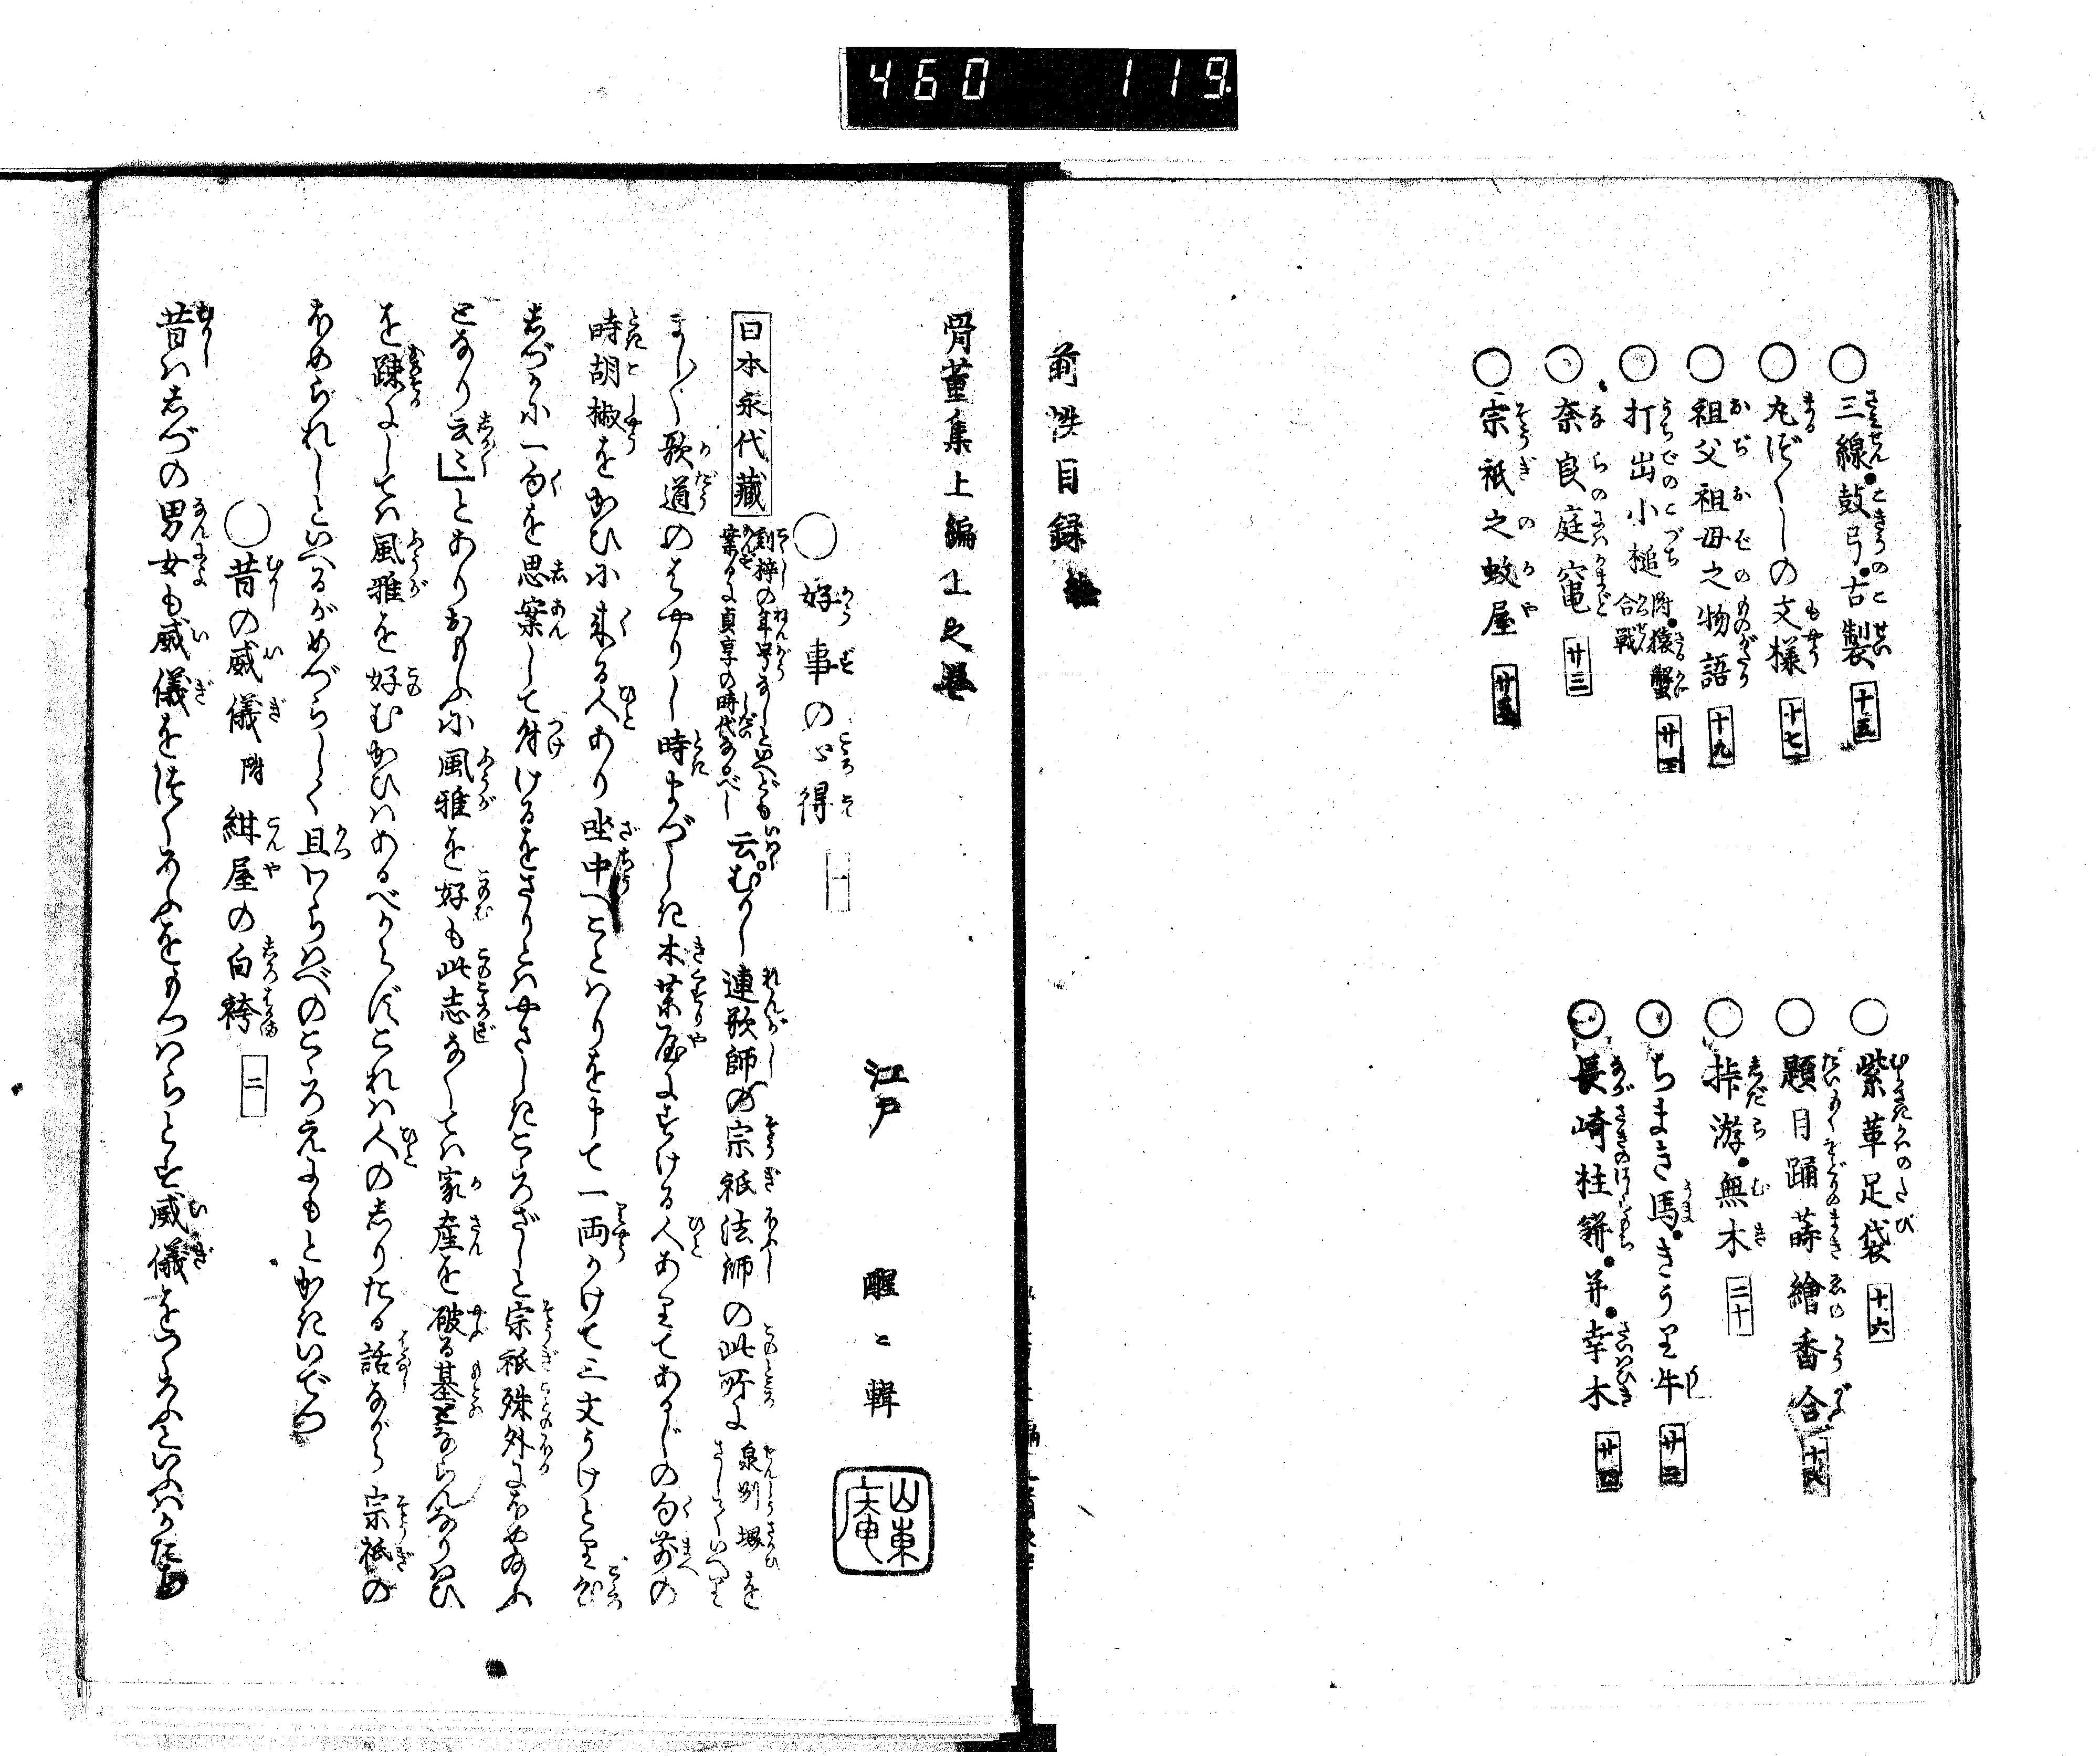 460 119
○三線●鼓弓●古製 十五
○丸づくしの文様 十七
○祖父祖母之物語 十九
○打出小槌 附●猿蟹合戦
○奈良庭竃 廿三
○宗祇之蚊屋
○紫革足袋 十六
○題目踊蒔繪香合
○掛游●無木 二十
○ちまき馬●きうり牛
○長崎柱餅●并●幸木 廿四
前帙目録
骨董集上編上之巻
江戸 醒々輯
山東庵
○好事の心得 一
日本永代蔵 刻梓の年号なしといへども案るに貞享の時代なるべし 云。むかし連歌師の宗祇法師の此所に 泉州堺をさしていへり
まし〳〵歌道のはやりし時まづしき木薬屋にすける人ありてあるじの句前の
時胡椒をかひに来る人あり坐中へことはりを申て一両かけて三文うけとり心
しづかに一句を思案して付けるをさりとはやさしきこゝろざしと宗祇殊外にほめ給ふ
となり云云」とありおもふに風雅を好も此志なくては家産を破る基とならんなりはひ
を疎にしては風雅を好むかひはあるべからずこれは人のしりたる話ながら宗祇の
ほめられしといへるがめづらしく且わらはべのこゝろえにもとかきいでつ
○昔の威儀 附 紺屋の白袴 二
昔はしづの男女も威儀をつくろふをもつはらとす威儀をつくろふといふはかたち